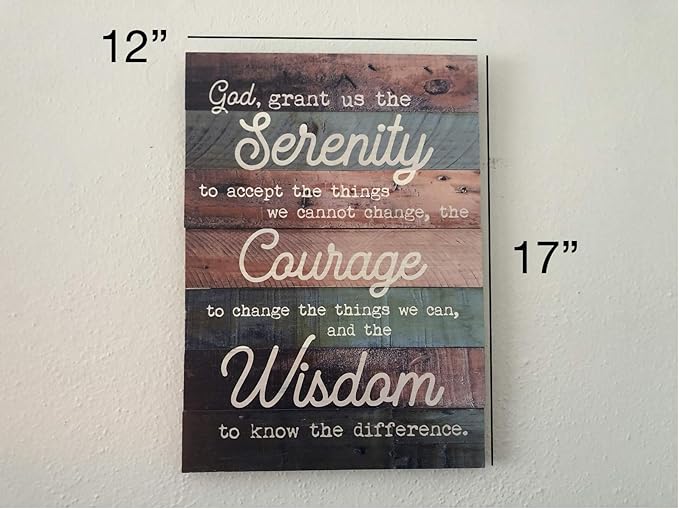 12”
God, grant us the
Serenity
to accept the things
we cannot change, the
Courage
17”
to change the things we can,
and the
Wisdom
to know the difference.